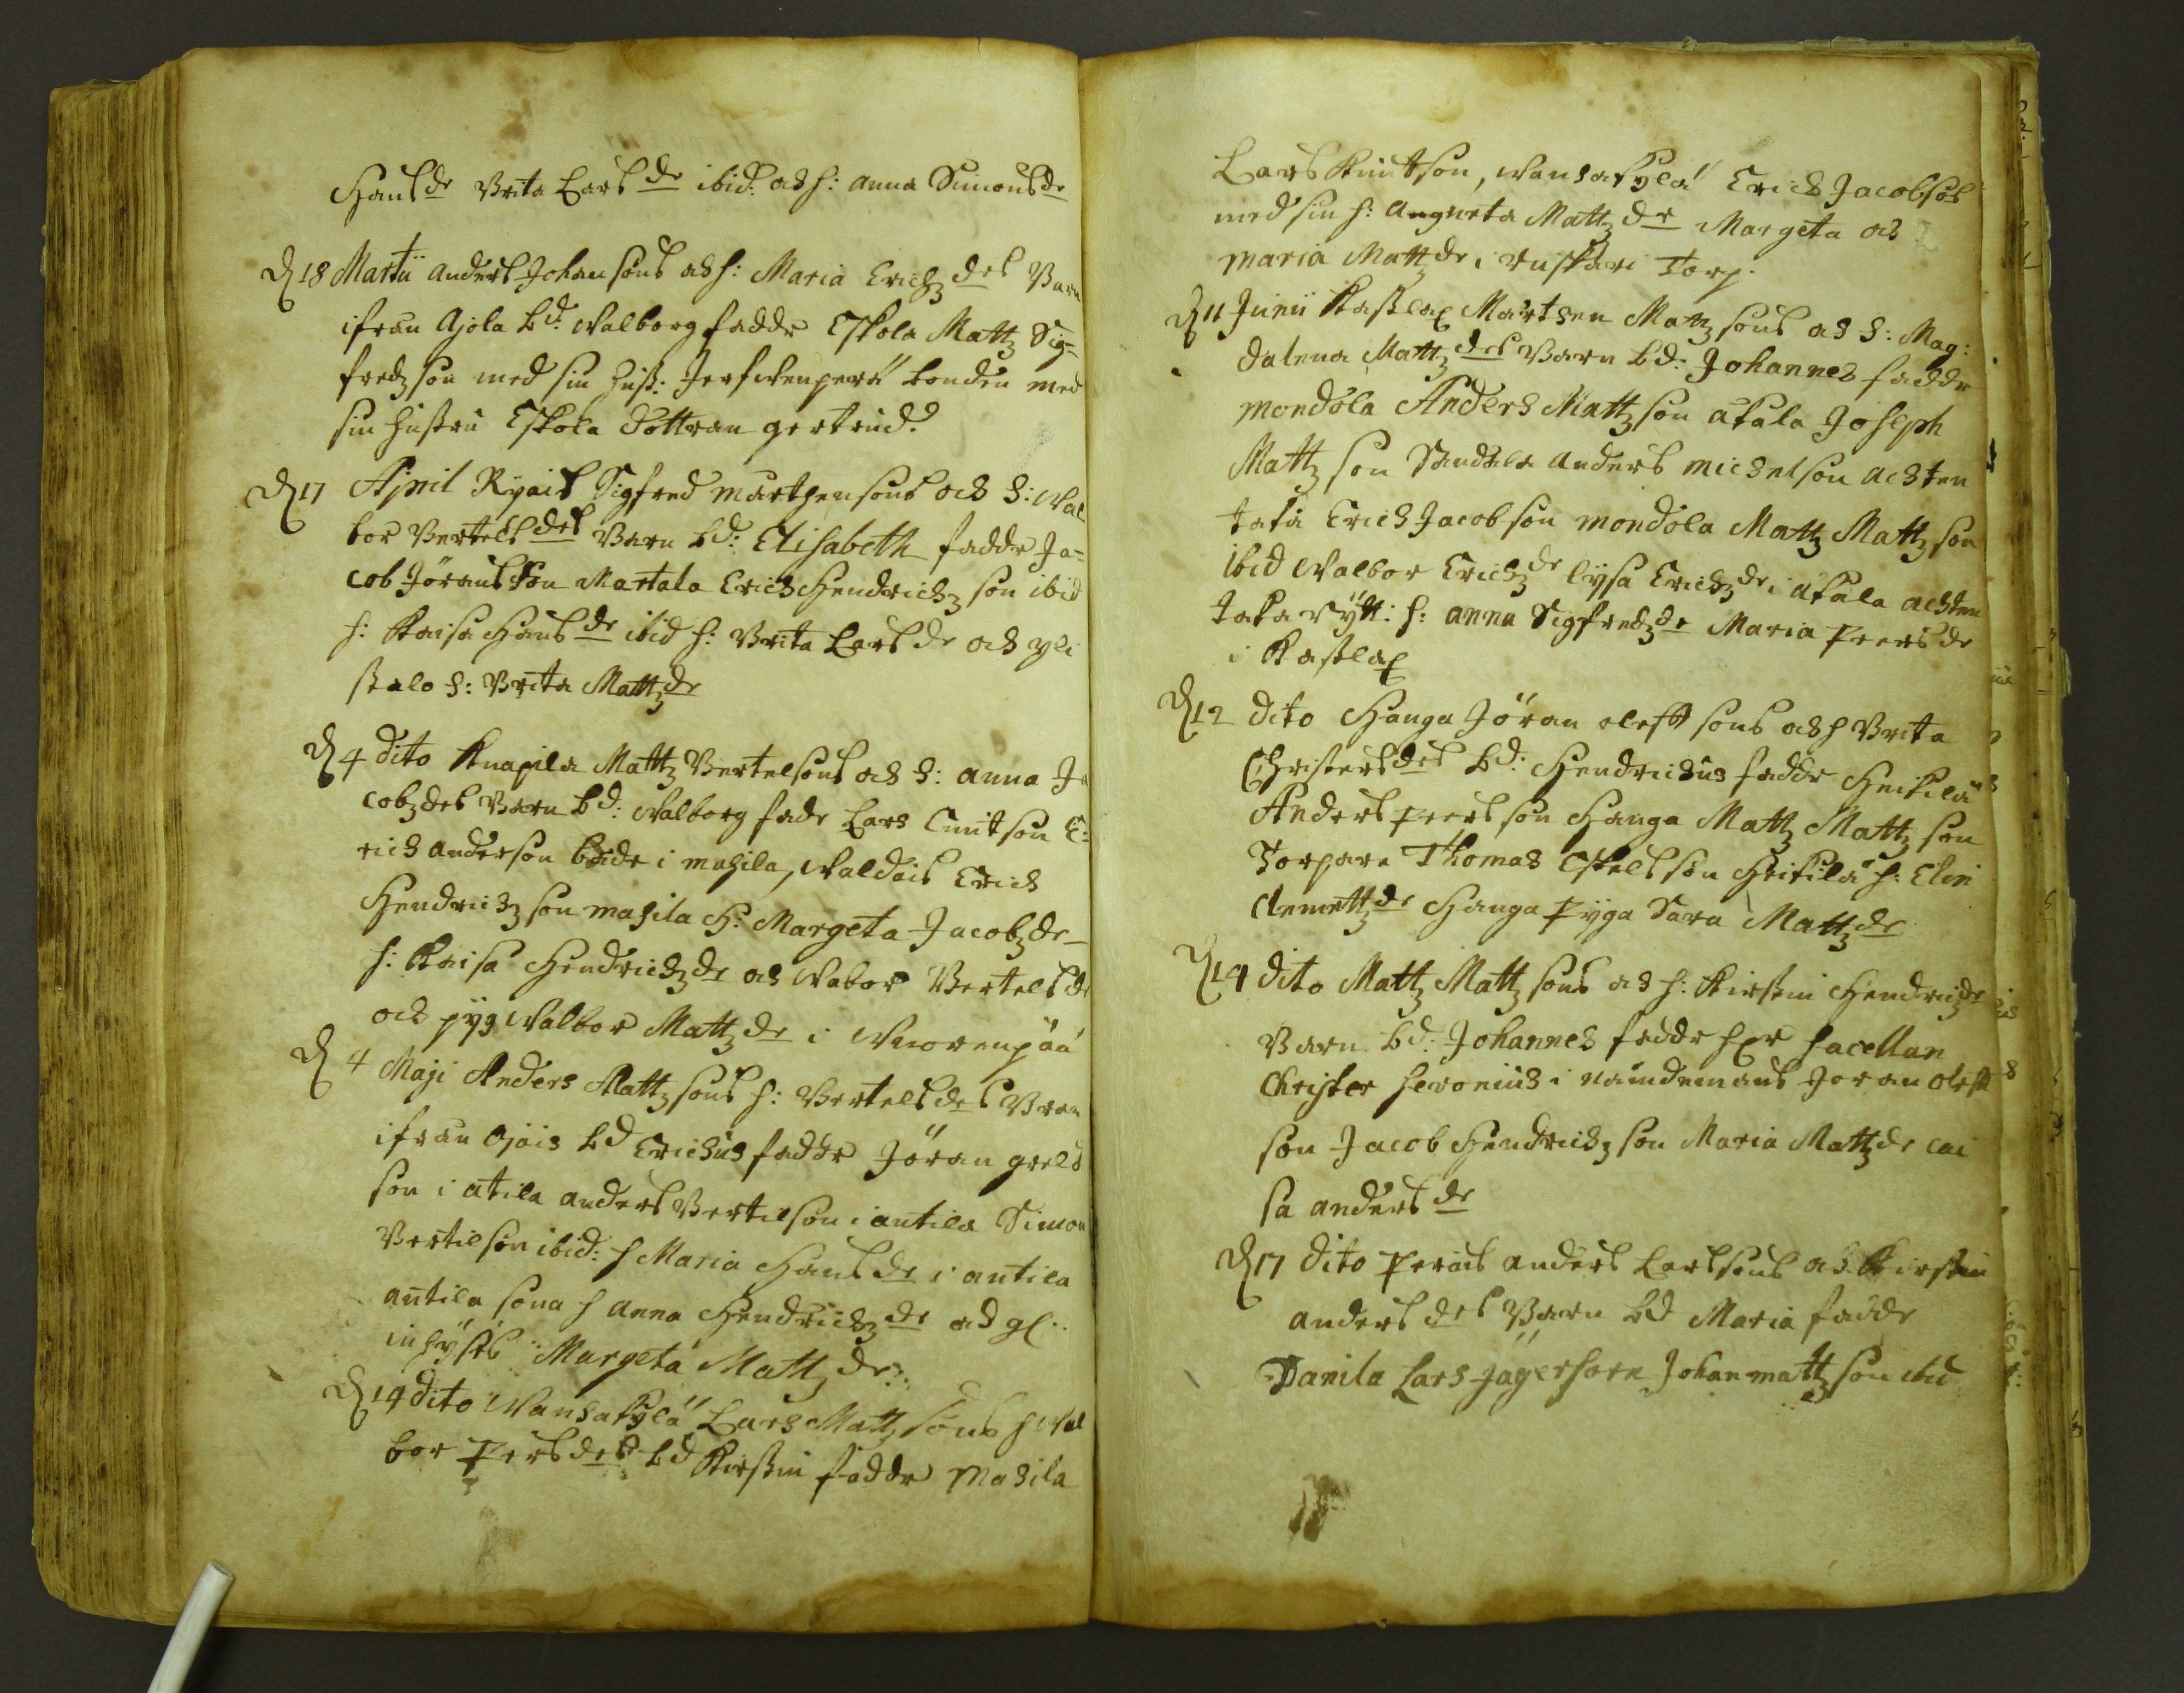 Hansdr Brita Larsdr ibid: och h: anna Simonsdr
D 18 Martii anders Johansons och h: Maria Erichzdrs Barn
ifrån Ojola bd: Walborg faddr Eskola Mattz Sig=
fredzson med sin hust: Jerfwenperä bonden med
sin hustru Eskola dottran gertrud.
D 17 Apriil Ryais Sigfred marthensons och h: Wal
bor Bertelsdrs Barn bd: Elisabeth faddr Ja=
cob Jöransson Martala Erich Hendrichzson ibid
h: Kaisa Hansdr ibid h: Brita Larsdr och yli
stalo h: Brita Mattzdr
D 4 dito Knapila Mattz Bertelsons och h: anna Ja
cobzdrs Barn bd: Walborg fadr Lars Cnutson E:
rich anderson både i mahila, Waldais Erich
Hendrichzson mahila H: Margeta Jacobzdr
h: Kaisa Hendrichzdr och Wabor Bertelsdr
och pyg Walbor Mattzdr i Wuorenpää
D 4 Maji Anders Mattzsons h: Bertelsdrs Bran
ifrån Ojais bd Erichus faddr Jöran grels
son i atila anders Bertilson i antila Simon
Bertilson ibid: h Maria Hansdr i antila
antila sona h anna Hendrichzdr och gl:
inhyses Margeta Mattzdr:
D 14 dito Wanhakylä Lars Mattzsons h Wal
bor Persdrs bd Kirstin faddr Mahila
Lars Knutson, Wanhakylä Erich Jacobson
med sin h: Angneta Mattzdr Margeta och
maria Mattzdr i ruskari Torp.
D 11 Junii Kastlax Martsen Mattzsons och h: Mag:
dalena Mattzdrs Barn bd: Johannes faddr
mondola Anders Mattzson atala Joseph
Mattzson Sandala anders michelson achten
taka Erich Jacobson mondola Mattz Mattzson
ibid Walbor Erichzdr lysa Erichzdr i atala achten
taka rytt: h: anna Sigfredzdr Maria Peersdr
i Kastlax
D 12 dito Hanga Jöran oleffsons och h Brita
Christersdrs bd: Hendrichus faddr Heikilä
Anders Peersson Hanga Mattz Mattzson
Torpare Thomas Eskelsson Heikilä h: Elin
Clemettzdr Hanga Pyga Sara Mattzdr
D 14 dito Mattz Mattzsons och h: Kirstin Hendrichzdr
Barn bd: Johannes faddr her sacellan
Christer heronius i nämdemans Joran oleff
son Jacob Hendrichzson Maria Mattzdr cai
sa andersdr
D 17 dito Perais anders Larssons och Kirstin
andersdrs Barn bd Maria faddr
Danila Lars Jägerhorn Johan mattzson ibid